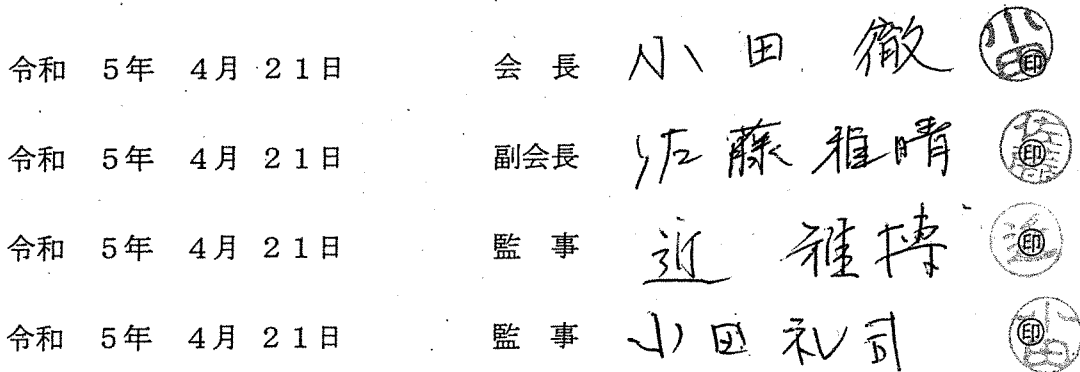 令和 5年 4月 21日 会 長 小田 徹 小田 ㊞
令和 5年 4月 21日 副会長 佐藤雅晴 佐藤 ㊞
令和 5年 4月 21日 監 事 近 雅博 近 ㊞
令和 5年 4月 21日 監 事 小田礼司 小田 ㊞